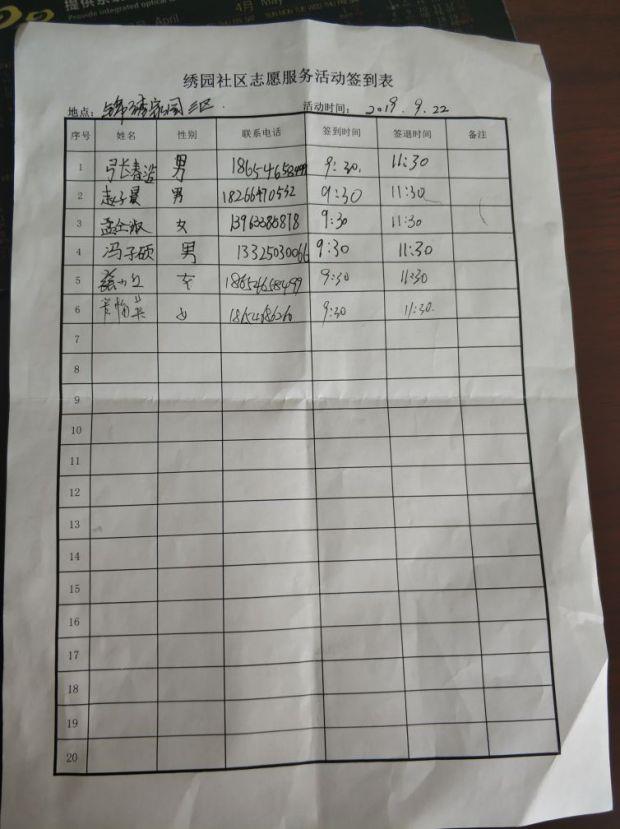 提供
Provide integrated optical
April
4月 May
SUN MON TUE WED THU FRI SAT
绣园社区志愿服务活动签到表
地点：锦绣家园三区 活动时间：2019.9.22
序号 姓名 性别 联系电话 签到时间 签退时间 备注
1 男 18654658499 9:30 11:30
2 赵子晨 男 18266470532 9:30 11:30
3 女 9:30 11:30
4 冯子硕 男 13325030066 9:30 11:30
5 女 18654658499 9:30 11:30
6 女 9:30 11:30
7
8
9
10
11
12
13
14
15
16
17
18
19
20